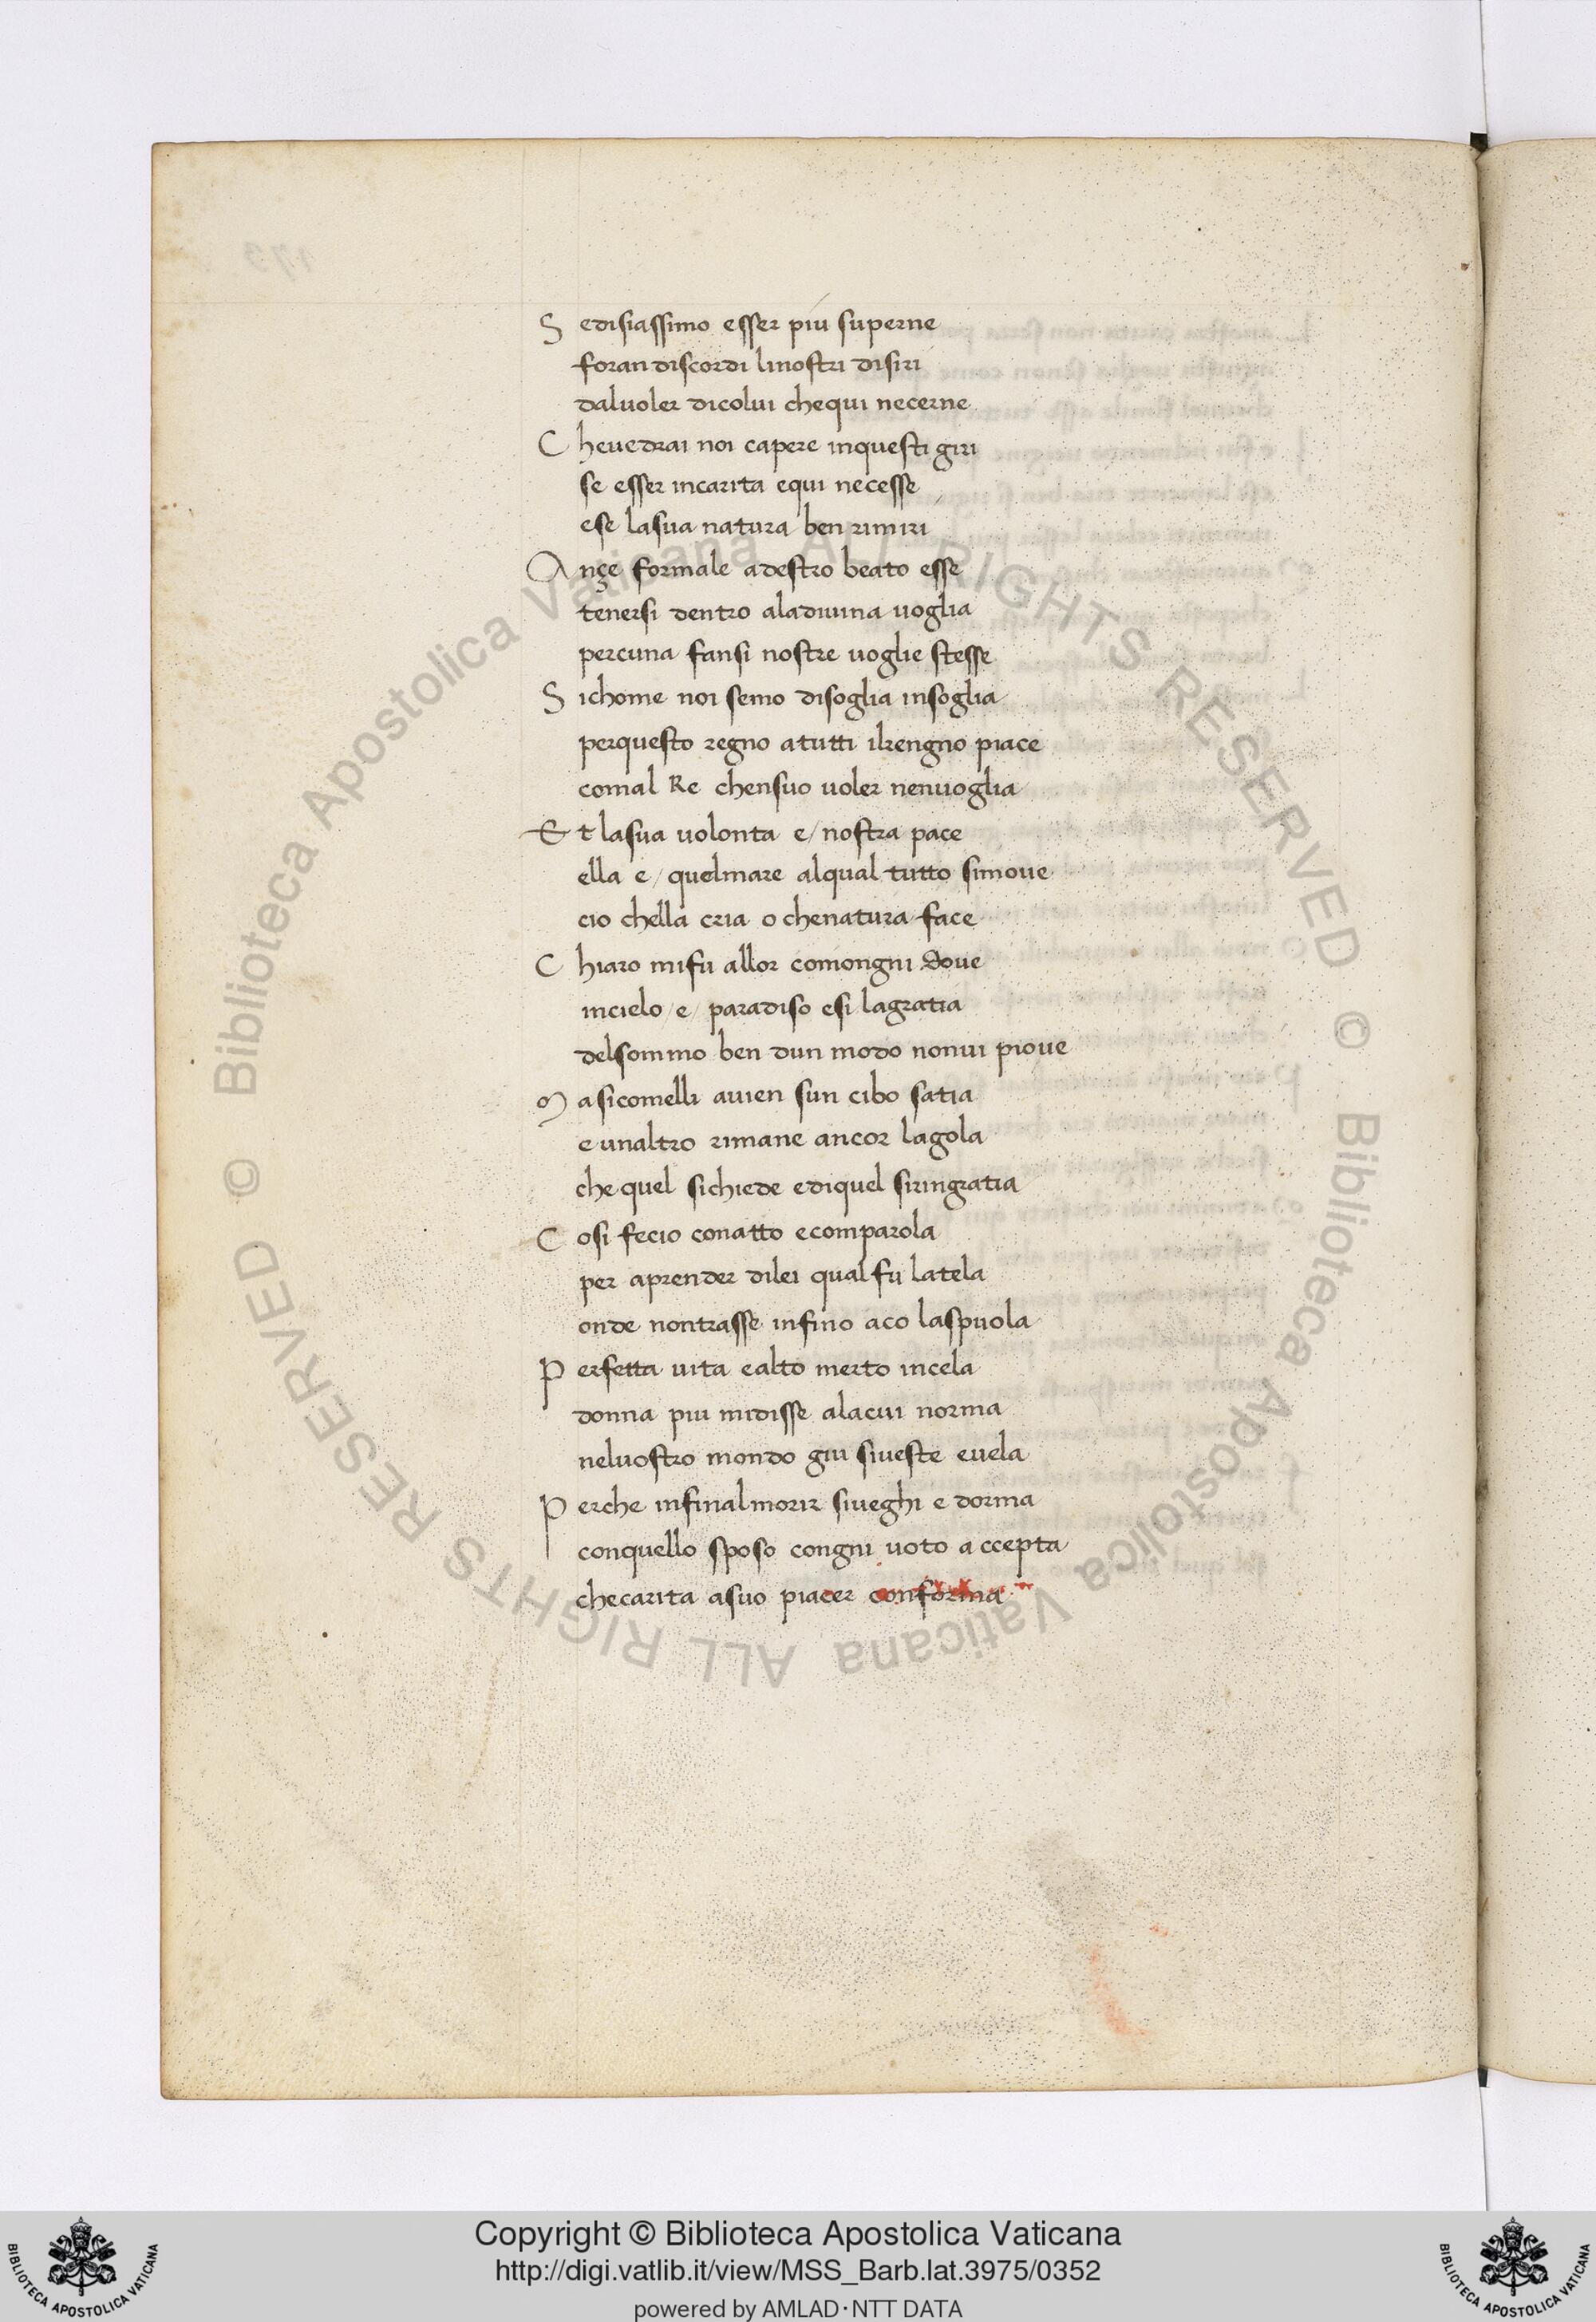 S edisiassimo esser piu superne
foran discordi linostri disiri
daluoler dicolui chequi necerne
C heuedrai noi capere inquesti giri
se esser incarita equi necesse
ese lasua natura ben rimiri
A nçe formale adestro beato esse
tenersi dentro aladiuina uoglia
percuna fansi nostre uoglie stesse
S ichome noi semo disoglia insoglia
perquesto regno atutti ilrengno piace
comal Re chensuo uoler nenuoglia
E t lasua uolonta e/ nostra pace
ella e/ quelmare alqual tutto simoue
cio chella cria o chenatura face
C hiaro mifu allor comongni doue
incielo /e/ paradiso esi lagratia
delsommo ben dun modo nonui pioue
M asicomelli auien sun cibo satia
e unaltro rimane ancor lagola
che quel sichiede ediquel siringratia
C osi fecio conatto ecomparola
per aprender dilei qual fu latela
onde nontrasse infino aco laspuola
P erfetta uita ealto merto incela
donna piu midisse alacui norma
neluostro mondo giu siueste euela
P erche infinalmorir siueghi e dorma
conquello sposo congni uoto accepta
checarita asuo piacer conforma
173
© Biblioteca Apostolica Vaticana ALL RIGHTS RESERVED © Biblioteca Apostolica Vaticana ALL RIGHTS RESERVED
Copyright © Biblioteca Apostolica Vaticana
http://digi.vatlib.it/view/MSS_Barb.lat.3975/0352
powered by AMLAD·NTT DATA
BIBLIOTECA APOSTOLICA VATICANA
BIBLIOTECA APOSTOLICA VATICANA